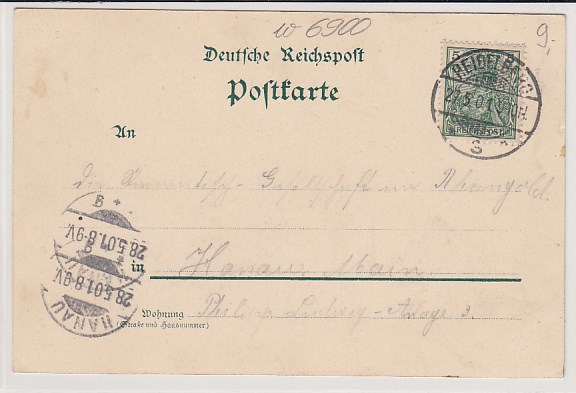 w 6900
9.-
Deutsche Reichspost
Postkarte
5
REICHSPOST
HEIDELBERG
An
die Gesellschaft im Rheingold.
HANAU
28.5.01.8-9V.
28.5.01.8-9V.
in Hanau, Main.
Wohnung Ludwig-Anlage 3.
(Straße und Hausnummer)